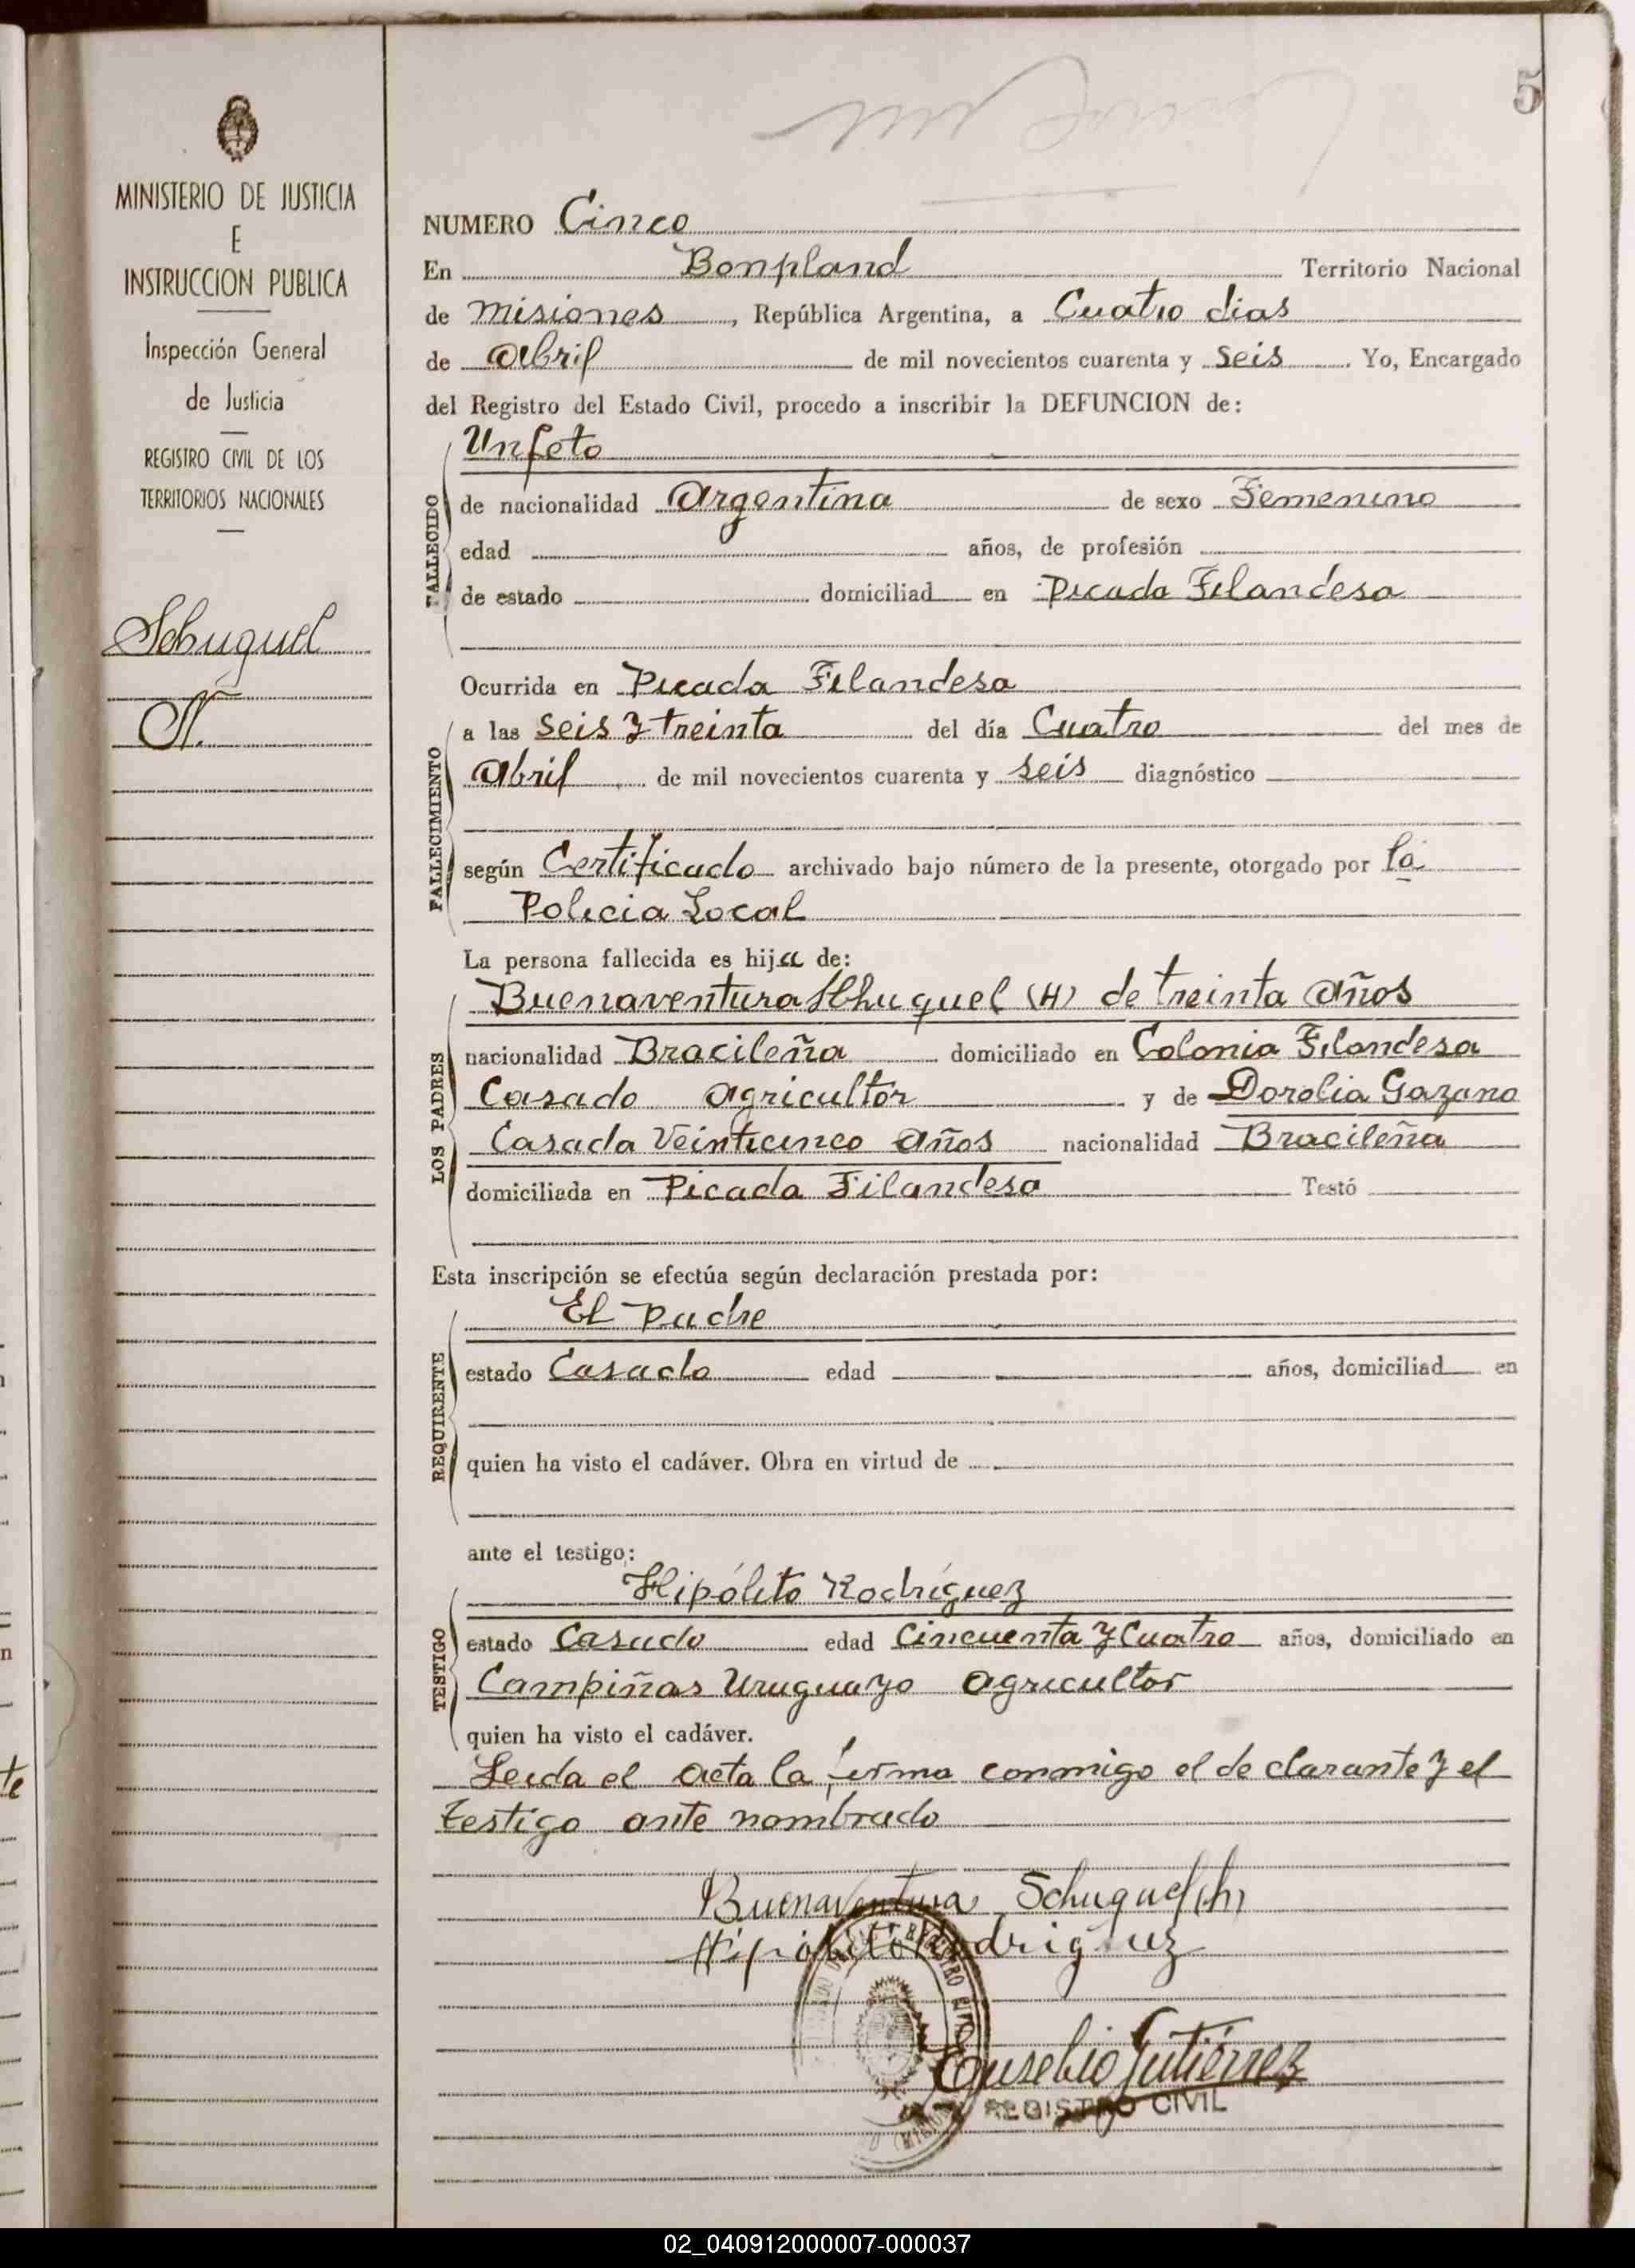 5
MINISTERIO DE JUSTICIA
E
INSTRUCCION PUBLICA
Inspección General
de Justicia
REGISTRO CIVIL DE LOS
TERRITORIOS NACIONALES
Schuquel
N.
NUMERO Cinco
En Bonpland Territorio Nacional
de Misiones, República Argentina, a Cuatro dias
de Abril de mil novecientos cuarenta y Seis. Yo, Encargado
del Registro del Estado Civil, procedo a inscribir la DEFUNCION de:
FALLECIDO
Un feto
de nacionalidad Argentina de sexo Femenino
edad años, de profesión
de estado domiciliad en Picada Filandesa
Ocurrida en Picada Filandesa
FALLECIMIENTO
a las Seis y treinta del día Cuatro del mes de
Abril de mil novecientos cuarenta y seis diagnóstico
según Certificado archivado bajo número de la presente, otorgado por la
Policia Local
La persona fallecida es hija de:
LOS PADRES
Buenaventura Shuquel (H) de treinta Años
nacionalidad Bracileña domiciliado en Colonia Filandesa
Casado Agricultor y de Dorolia Gazano
Casada Veinticinco Años nacionalidad Bracileña
domiciliada en Picada Filandesa Testó
Esta inscripción se efectúa según declaración prestada por:
REQUIRENTE
El Padre
estado Casado edad años, domiciliad en
quien ha visto el cadáver. Obra en virtud de
ante el testigo:
TESTIGO
Hipólito Rodríguez
estado Casado edad Cincuenta y Cuatro años, domiciliado en
Campiñas Uruguayo Agricultor
quien ha visto el cadáver.
Leida el acta la firma conmigo el declarante y el
testigo ante nombrado
Buenaventura Schuquel (h)
Hipolito Rodriguez
Eusebio Gutiérrez
REGISTRO CIVIL
02_040912000007-000037